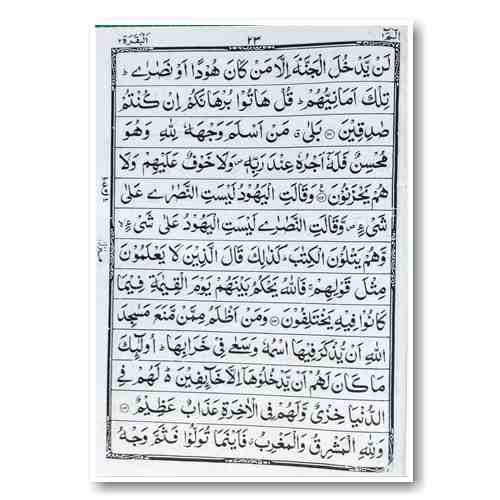 الٓمّٓ ١ ٢٣ اَلْبَقَرَة ٢
لَنْ يَّدْخُلَ الْجَنَّةَ اِلَّا مَنْ كَانَ هُوْدًا اَوْ نَصٰرٰى ؕ
تِلْكَ اَمَانِيُّهُمْ ؕ قُلْ هَاتُوْا بُرْهَانَكُمْ اِنْ كُنْتُمْ
صٰدِقِيْنَ ۝ بَلٰى ۗ مَنْ اَسْلَمَ وَجْهَهٗ لِلّٰهِ وَهُوَ
مُحْسِنٌ فَلَهٗۤ اَجْرُهٗ عِنْدَ رَبِّهٖ ۪ وَلَا خَوْفٌ عَلَيْهِمْ وَلَا
هُمْ يَحْزَنُوْنَ ۝ وَقَالَتِ الْيَهُوْدُ لَيْسَتِ النَّصٰرٰى عَلٰى
شَيْءٍ ۪ وَّقَالَتِ النَّصٰرٰى لَيْسَتِ الْيَهُوْدُ عَلٰى شَيْءٍ ۙ
وَّهُمْ يَتْلُوْنَ الْكِتٰبَ ؕ كَذٰلِكَ قَالَ الَّذِيْنَ لَا يَعْلَمُوْنَ
مِثْلَ قَوْلِهِمْ ۚ فَاللّٰهُ يَحْكُمُ بَيْنَهُمْ يَوْمَ الْقِيٰمَةِ فِيْمَا
كَانُوْا فِيْهِ يَخْتَلِفُوْنَ ۝ وَمَنْ اَظْلَمُ مِمَّنْ مَّنَعَ مَسٰجِدَ
اللّٰهِ اَنْ يُّذْكَرَ فِيْهَا اسْمُهٗ وَسَعٰى فِيْ خَرَابِهَا ؕ اُولٰٓئِكَ
مَا كَانَ لَهُمْ اَنْ يَّدْخُلُوْهَاۤ اِلَّا خَآئِفِيْنَ ؕ لَهُمْ فِي
الدُّنْيَا خِزْيٌ وَّلَهُمْ فِي الْاٰخِرَةِ عَذَابٌ عَظِيْمٌ ۝
وَلِلّٰهِ الْمَشْرِقُ وَالْمَغْرِبُ ۗ فَاَيْنَمَا تُوَلُّوْا فَثَمَّ وَجْهُ